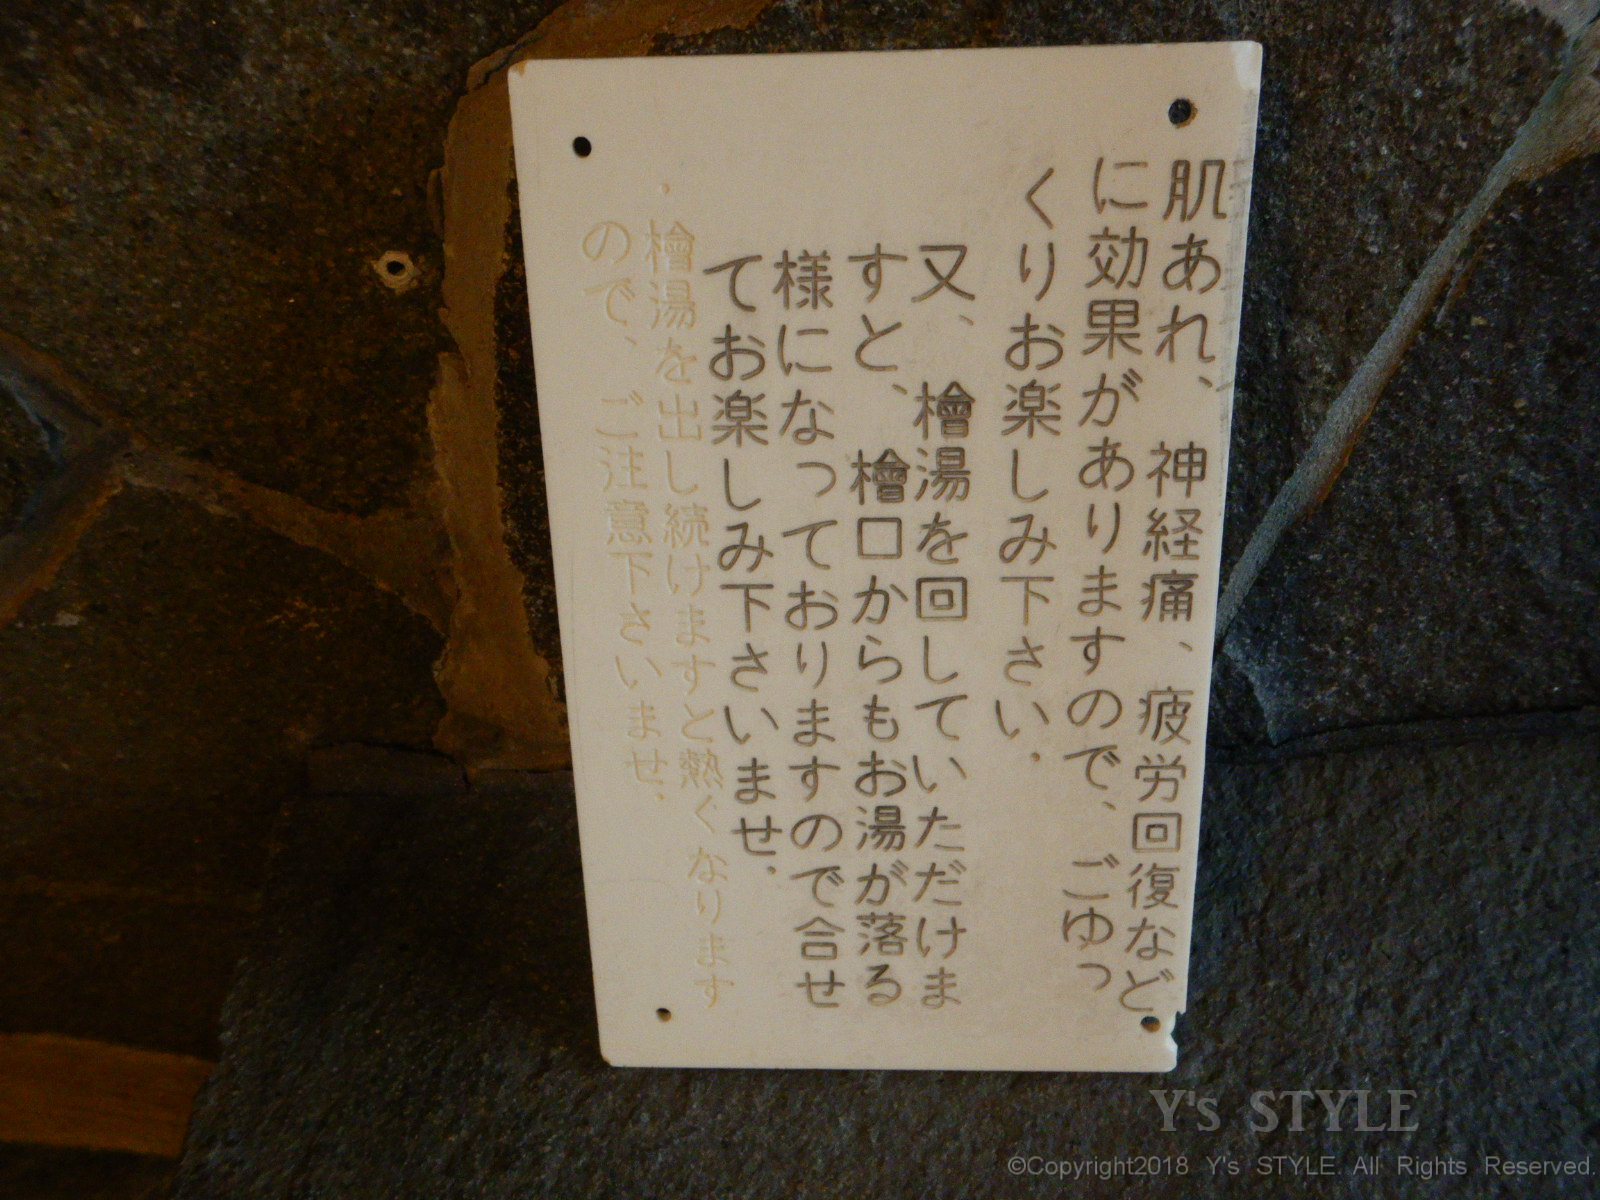 肌あれ、神経痛、疲労回復など
に効果がありますので、ごゆっ
くりお楽しみ下さい.
又、檜湯を回していただけま
すと、檜口からもお湯が落る
様になっておりますので合せ
てお楽しみ下さいませ.
・檜湯を出し続けますと熱くなります
ので、ご注意下さいませ.
Y's STYLE
©Copyright2018 Y's STYLE. All Rights Reserved.